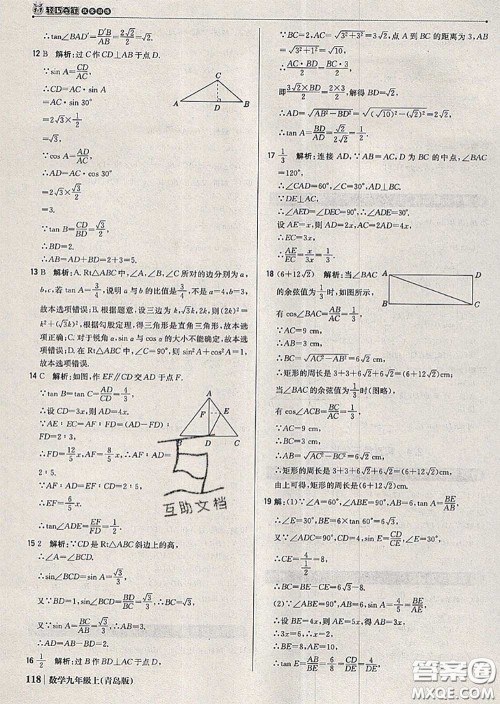 轻巧夺冠
∴tan∠BAD′=BD′/AD′=2/√2=√2.
12 B 解析:过 C 作 CD⊥AB 于点 D.
∴sin A=CD/AC.
∴CD=AC·sin A
=AC·sin 30°
=2√3×1/2
=√3.
∵cos A=AD/AC,
∴AD=AC·cos 30°
=2√3×√3/2
=3.
∵tan B=CD/BD=√3/2,
∴BD=2.
∴AB=AD+DB=2+3=5.
13 B 解析:A. Rt△ABC 中,∠A,∠B,∠C 所对的边分别为 a,
b,c.若 tan A=3/4,说明 a 与 b 的比值是 3/4,不是 a=4,b=3,
故本选项错误;B. 根据题意,设三边为 k,√3k,2k,则(2k)²=
k²+(√3k)²,根据勾股定理,得三角形是直角三角形,故本选项
正确;C. 对于锐角 α,sin α 与 cos α 的大小不能确定,故本选项
错误;D. 在 Rt△ABC 中,∠C=90°,则 sin²A+cos²A=1.
故本选项错误.
14 C 解析:如图,作 EF∥CD 交 AD 于点 F.
∵tan B=tan C=AD/CD=4/3,
∴设 CD=3x,则 AD=4x.
∴FD∶CE=AF∶AE=(AD−FD)∶
FD=AD∶FD
∴FD=12/5x,AF=8/5x.
∴EF=6/5x.
∴tan∠ADE=EF/FD=1/2.
15 2 解析:∵CD 是 Rt△ABC 斜边上的高,
∴∠A=∠BCD.
∴sin∠BCD=sin A=√3/3.
又∵sin∠BCD=BD/BC=√3/3,
∴BC=2√3.
又∵sin A=BC/AB=√3/3,∴AB=6.
16 1/2 解析:过 B 作 BD⊥AC 于点 D.
118 数学九年级上(青岛版)
∵S△ABC=1/2×2×3=3,点 A 到 BC 的距离为 3,AB
=3√2,
∴AC·BD/2=BC·3/2,
即3√2×BD/2=2×3/2,解得 BD=√2.
∴AD=√(AB²−BD²)=√((√10)²−(√2)²)=2√2.
∴tan A=BD/AD=√2/2√2=1/2.
17 1/3 解析:连接 AD,∵AB=AC,D 为 BC 的中点,
∠BAC=120°,
∴∠CAD=60°,∠C=30°,AD⊥BC.
∵DE⊥AC,
∴∠DEA=∠DEC=90°,∠ADE=30°.
设 AE=x,则 AD=2x,
∴AC=4x,CE=3x.
∴AE/CE=x/3x=1/3.
18 (6+12√2) 解析:当∠BAC
的余弦值为1/3时,如图所示.
有 cos∠BAC=AB/AC=1/3.
∵AC=9 cm,
∴AB=3 cm.
∴BC=√(AC²−AB²)=6√2 cm.
∴矩形的周长是 3+3+6√2+6√2=(6+12√2) cm.
当∠ACB 的余弦值为1/3时(图略),
有 cos∠ACB=BC/AC=1/3.
∵AC=9 cm,
∴BC=3 cm.
∴AB=√(AC²−BC²)=6√2 cm.
∴矩形的周长是 3+3+6√2+6√2=(6+12√2) cm.
由上可得,矩形的周长是(6+12√2) cm.
19 解:(1)∵∠A=60°,∠ABE=90°,AB=6,tan A=BE/AB,
∴∠E=30°,BE=6·tan 60°=6√3.
又∵∠CDE=90°,CD=4,sin E=CD/CE,∠E=30°,
∴CE=4/(1/2)=8.
∴BC=BE−CE=6√3−8.
(2)∵∠ABE=90°,AB=6,sin A=4/5=BE/AE,
∴设 BE=4x,则 AE=5x,得 AB=3x.
∴3x=6,得 x=2.
∴BE=8,AE=10.
∴tan E=AB/BE=6/8=CD/DE=4/DE,
互助文档
答案圈
MXQE.COM